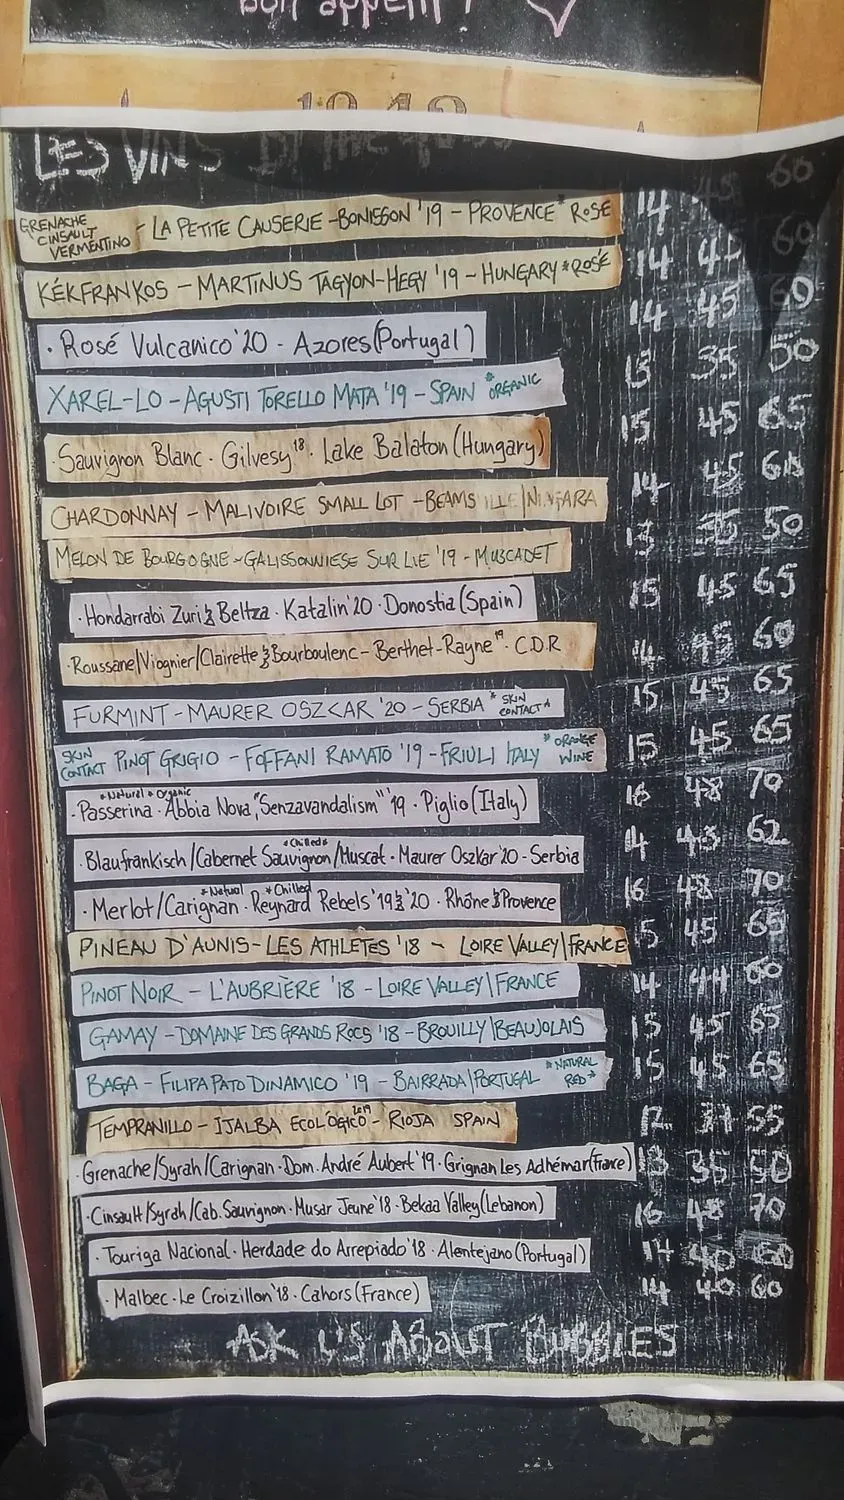 bon appetit!
LES VINS
GRENACHE CINSAULT VERMENTINO - LA PETITE CAUSERIE - BONISSON '19 - PROVENCE * ROSÉ 14 60
KÉKFRANKOS - MARTINUS TAGYON-HEGY '19 - HUNGARY * ROSÉ 14 60
· Rosé Vulcanico '20 - Azores (Portugal) 14 45 60
XAREL-LO - AGUSTI TORELLO MATA '19 - SPAIN * ORGANIC 13 35 50
· Sauvignon Blanc · Gilvesy 18 · Lake Balaton (Hungary) 15 45 65
CHARDONNAY - MALIVOIRE SMALL LOT - BEAMSVILLE | NIAGARA 14 45
MELON DE BOURGOGNE - GALISSONNIESE SUR LIE '19 - MUSCADET 13 35 50
· Hondarrabi Zuri & Beltza · Katalin '20 · Donostia (Spain) 15 45 65
· Roussane/Viognier/Clairette & Bourboulenc - Berthet-Rayne 19 · C.D.R 14 45 60
FURMINT - MAURER OSZKAR '20 - SERBIA * SKIN CONTACT * 15 45 65
SKIN CONTACT PINOT GRIGIO - FOFFANI RAMATO '19 - FRIULI ITALY * ORANGE WINE 15 45 65
* Natural * Organic
· Passerina · Abbia Nova, "Senzavandalism" '19 · Piglio (Italy) 16 48 70
* Chilled *
· Blaufrankisch/Cabernet Sauvignon/Muscat · Maurer Oszkar '20 - Serbia 14 43 62
* Natual * Chilled
· Merlot/Carignan · Reynard Rebels '19 & '20 · Rhône & Provence 16 48 70
PINEAU D'AUNIS - LES ATHLETES '18 - LOIRE VALLEY | FRANCE 15 45 65
PINOT NOIR - L'AUBRIÈRE '18 - LOIRE VALLEY | FRANCE 14 44 60
GAMAY - DOMAINE DES GRANDS ROCS '18 - BROUILLY | BEAUJOLAIS 15 45 65
BAGA - FILIPA PATO DINAMICO '19 - BAIRRADA | PORTUGAL * NATURAL RED * 15 45 65
TEMPRANILLO - IJALBA ECOLÓGICO 2019 - RIOJA SPAIN 12 37 55
· Grenache/Syrah/Carignan · Dom. André Aubert '19 · Grignan Les Adhémar (France) 13 35 50
· Cinsault/Syrah/Cab. Sauvignon · Musar Jeune '18 · Bekaa Valley (Lebanon) 16 48 70
· Touriga Nacional · Herdade do Arrepiado '18 · Alentejano (Portugal) 14 40 60
· Malbec · Le Croizillon '18 · Cahors (France) 14 40 60
ASK US ABOUT BUBBLES